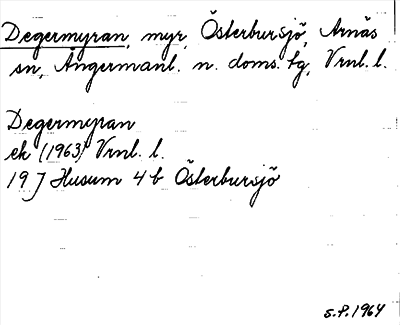 Degermyran, myr, Österbursjö, Arnäs
sn, Ångermanl. n. doms. tg, Vrnl. l.
Degermyran
ek (1963) Vrnl. l.
19 J Husum 4 b Österbursjö
S.P. 1964